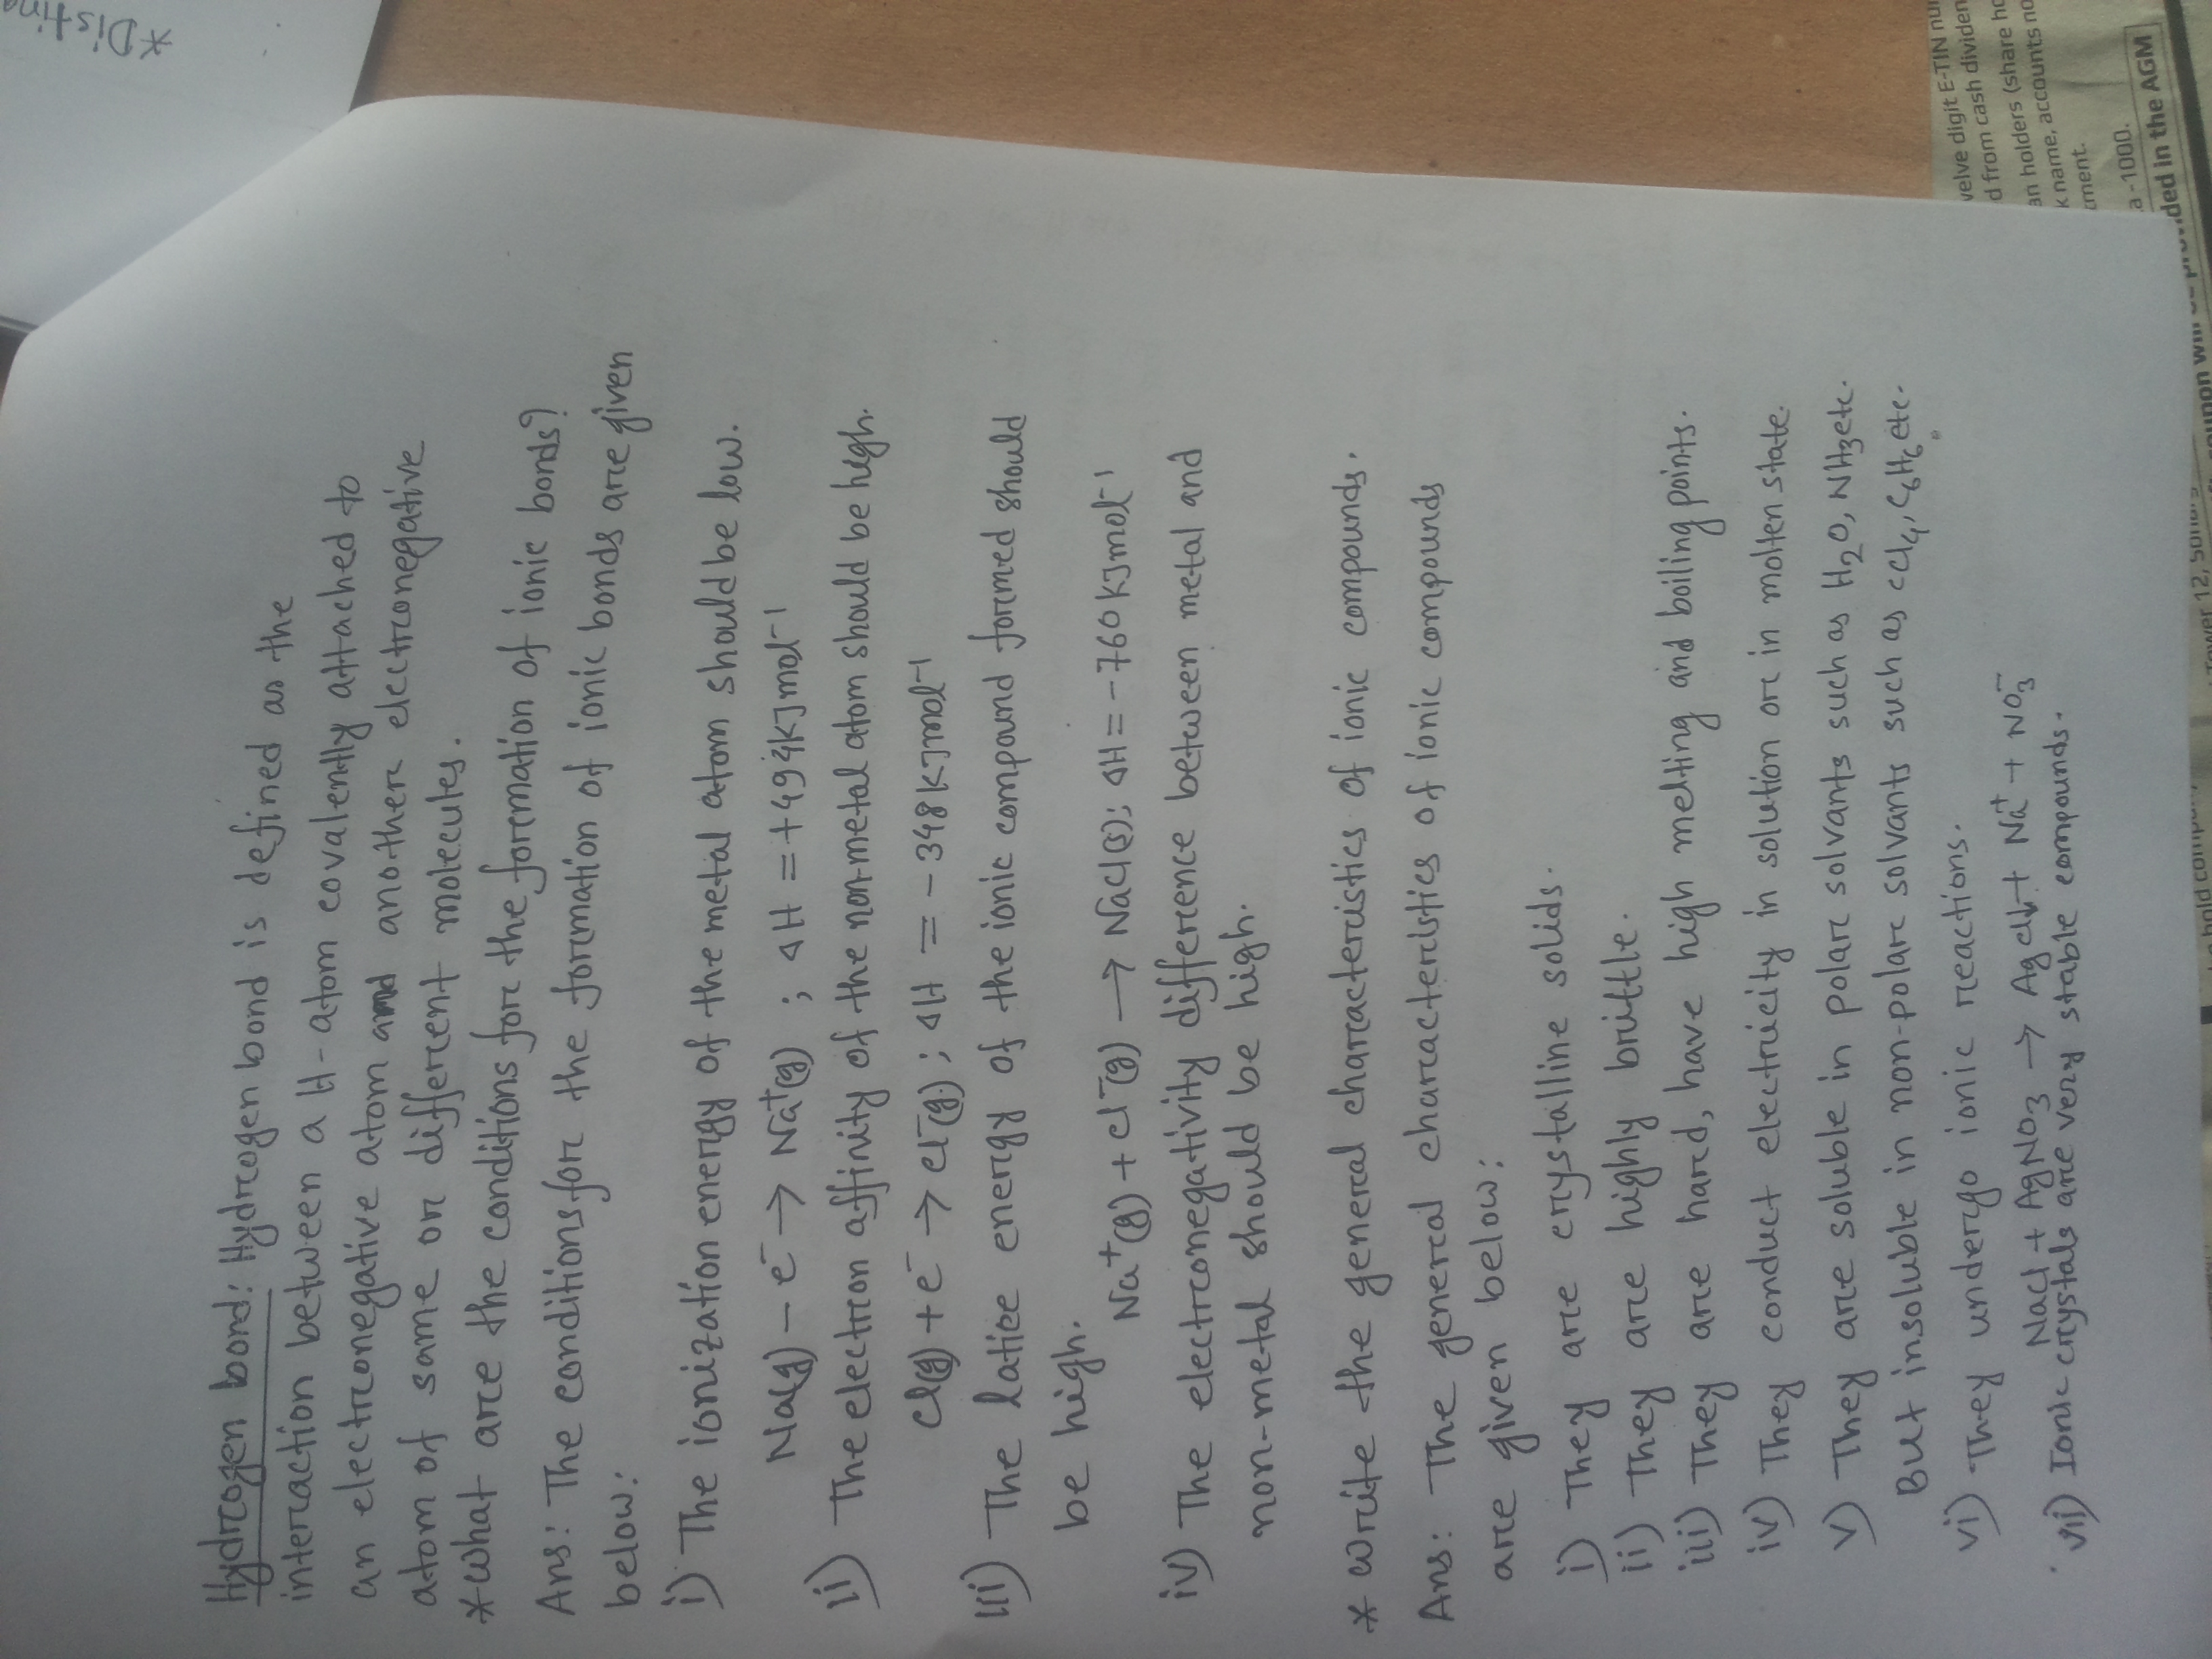 Hydrogen bond: Hydrogen bond is defined as the
interaction between a H-atom covalently attached to
an electronegative atom and another electronegative
atom of same or different molecules.
*What are the conditions for the formation of ionic bonds?
Ans: The conditions for the formation of ionic bonds are given
below:
i) The ionization energy of the metal atom should be low.
Na(g) - e⁻ → Na⁺(g) ; ΔH = +494kJmol⁻¹
ii) The electron affinity of the non-metal atom should be high.
Cl(g) + e⁻ → Cl⁻(g) ; ΔH = -348kJmol⁻¹
iii) The latice energy of the ionic compound formed should
be high.
Na⁺(g) + Cl⁻(g) → NaCl(s); ΔH = -760kJmol⁻¹
iv) The electronegativity difference between metal and
non-metal should be high.
* Write the general characteristics of ionic compounds.
Ans: The general characteristics of ionic compounds
are given below:
i) They are crystalline solids.
ii) They are highly brittle.
iii) They are hard, have high melting and boiling points.
iv) They conduct electricity in solution or in molten state.
v) They are soluble in polar solvants such as H₂O, NH₃ etc.
But insoluble in non-polar solvants such as CCl₄, C₆H₆ etc.
vi) They undergo ionic reactions.
NaCl + AgNO₃ → AgCl↓ + Na⁺ + NO₃⁻
vii) Ionic crystals are very stable compounds.
*Distin
velve digit E-TIN nu
d from cash dividen
an holders (share ho
k name, accounts no
ment.
a -1000.
ded in the AGM